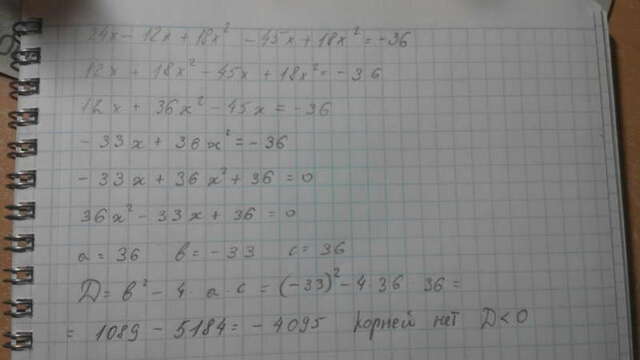 24x - 12x + 18x² - 45x + 18x² = -36
12x + 18x² - 45x + 18x² = -36
12x + 36x² - 45x = -36
- 33x + 36x² = - 36
- 33x + 36x² + 36 = 0
36x² - 33x + 36 = 0
a = 36 в = - 33 c = 36
D = в² - 4 · a · c = (-33)² - 4 · 36 · 36 =
= 1089 - 5184 = - 4095 корней нет D < 0